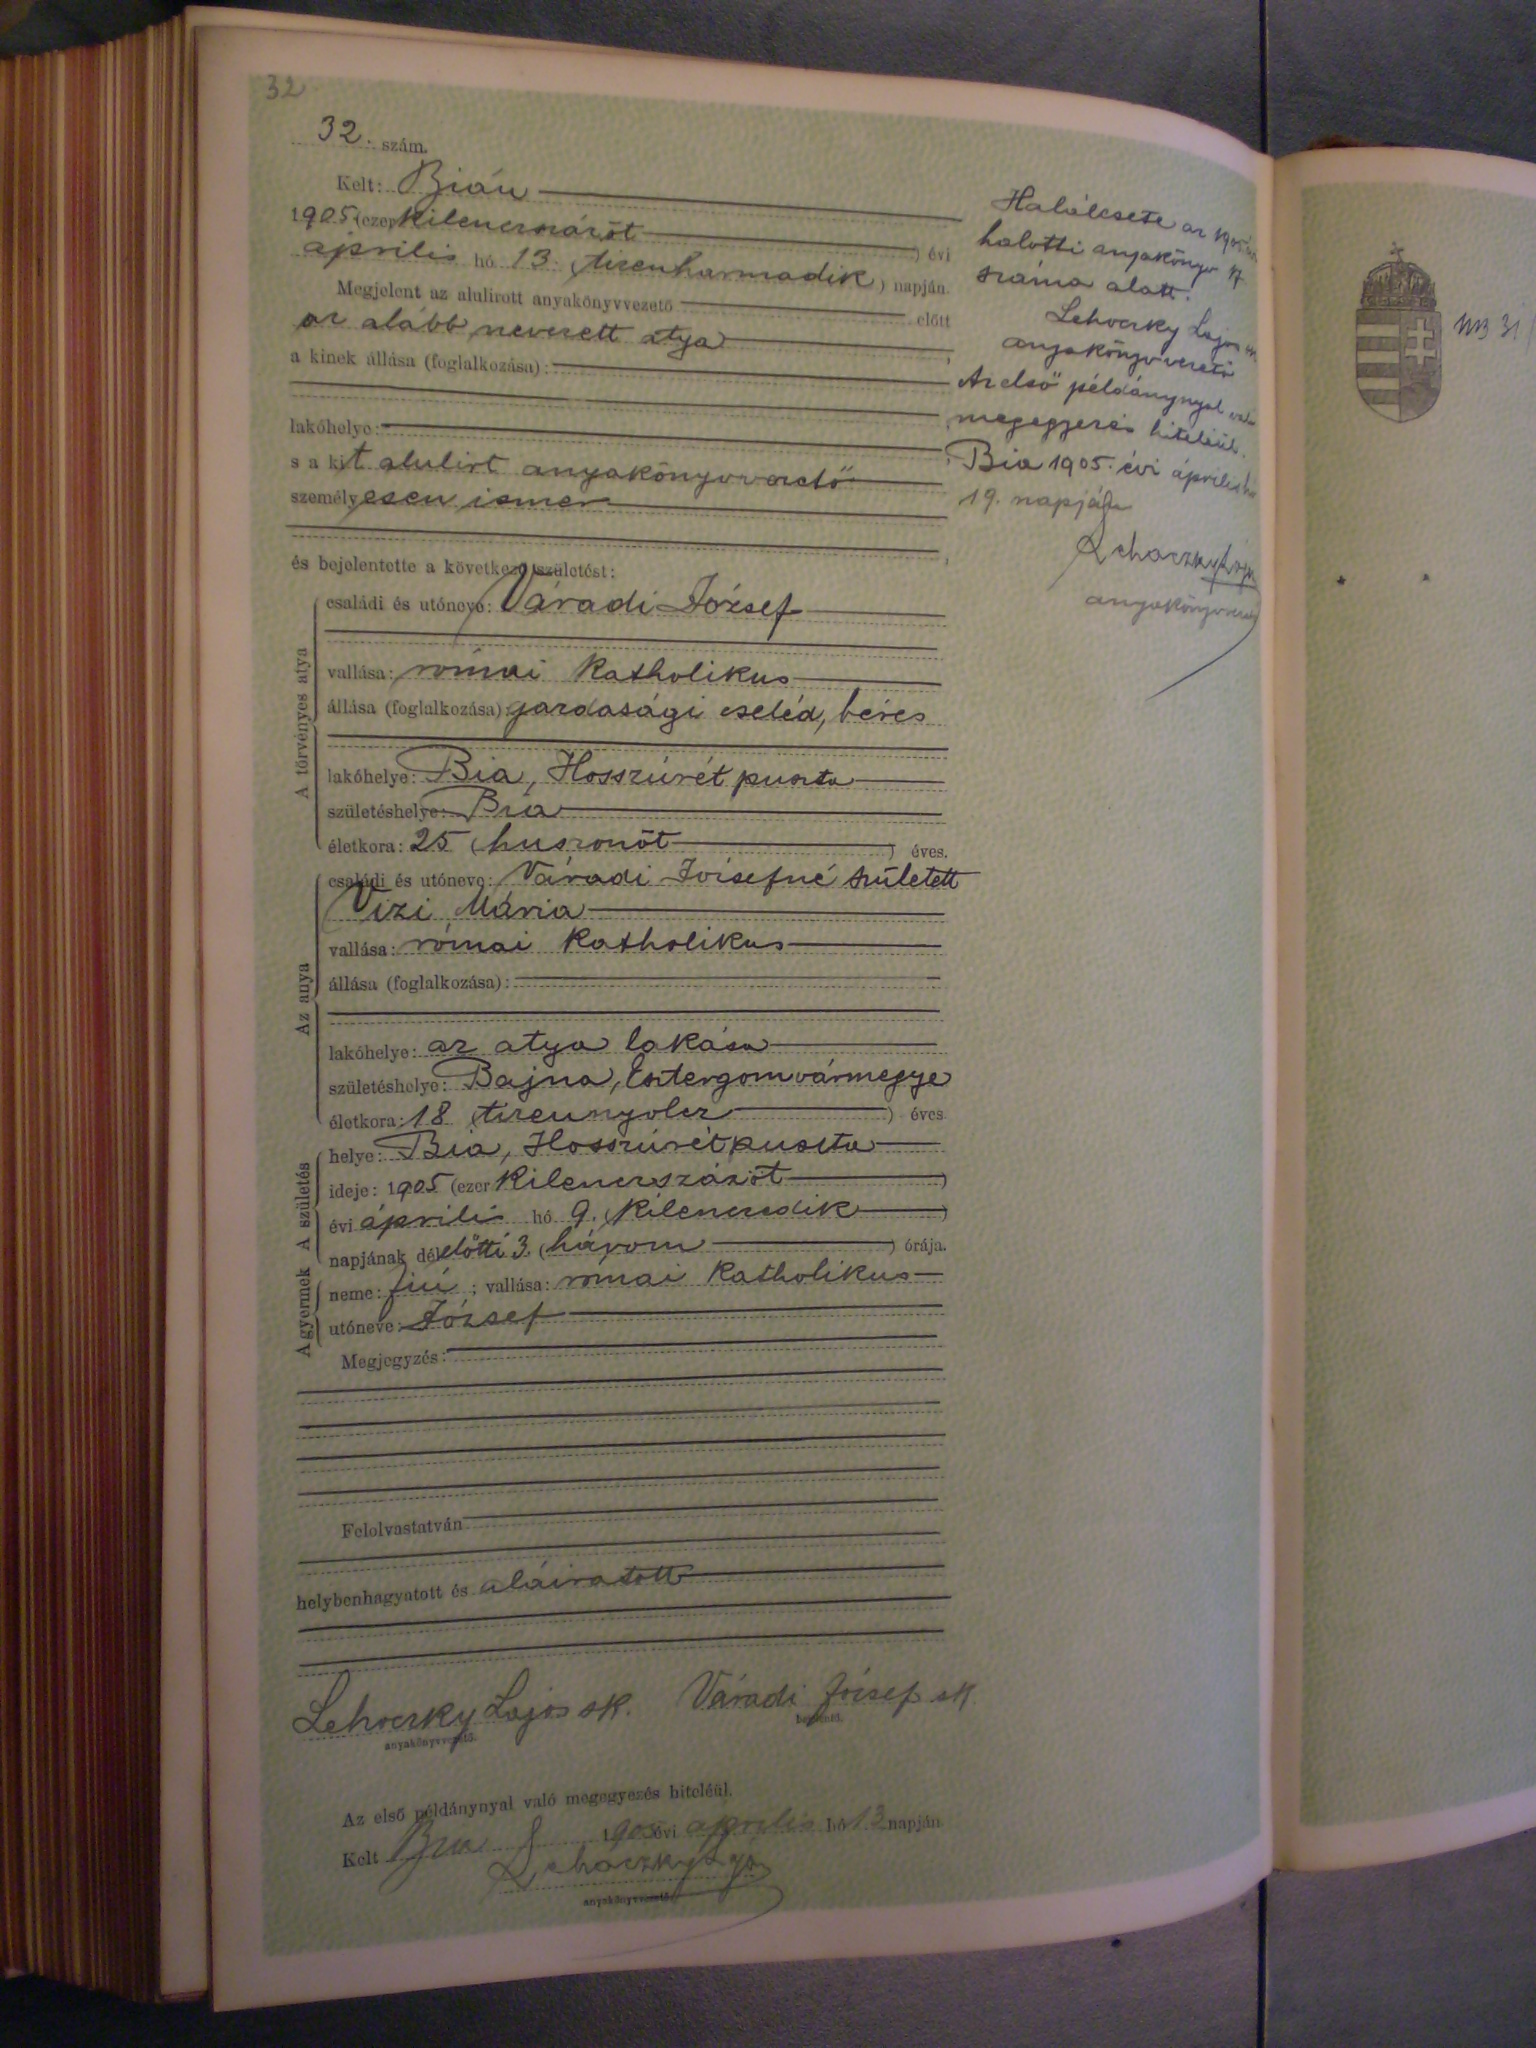 32
32. szám.
Kelt: Bián
1905 (ezer kilenczszázöt) évi
április hó 13. (tizenharmadik) napján.
Megjelent az alulirott anyakönyvvezető előtt
az alább nevezett atya
a kinek állása (foglalkozása):
lakóhelye:
s a kit alulirt anyakönyvvezető
személyesen ismer
és bejelentette a következő születést:
A törvényes atya
családi és utóneve: Váradi József
vallása: római katholikus
állása (foglalkozása): gazdasági cseléd, béres
lakóhelye: Bia, Hosszúrét puszta
születéshelye: Bia
életkora: 25 (huszonöt) éves.
Az anya
családi és utóneve: Váradi Józsefné született
Vizi Mária
vallása: római katholikus
állása (foglalkozása):
lakóhelye: az atya lakása
születéshelye: Bajna, Esztergomvármegye
életkora: 18 (tizennyolcz) éves
A születés
helye: Bia, Hosszúrétpuszta
ideje: 1905 (ezer kilenczszázöt)
évi április hó 9. (kilenczedik)
napjának délelőtti 3. (három) órája.
A gyermek
neme: fiú; vallása: római katholikus
utóneve: József
Megjegyzés:
Felolvastatván
helybenhagyatott és aláiratott
Lehoczky Lajos sk. Váradi József sk.
anyakönyvvezető. bejelentő.
Az első példánynyal való megegyezés hiteléül.
Kelt Bia 1905 évi április hó 13 napján
Lehoczky Lajos
anyakönyvvezető.
Halálesete az 1905
halotti anyakönyv 17
száma alatt.
Lehoczky Lajos
anyakönyvvezető
Az első példánynyal
megegyezés hiteléül.
Bia 1905. évi április hó
19. napján
Lehoczky Lajos
anyakönyvvezető